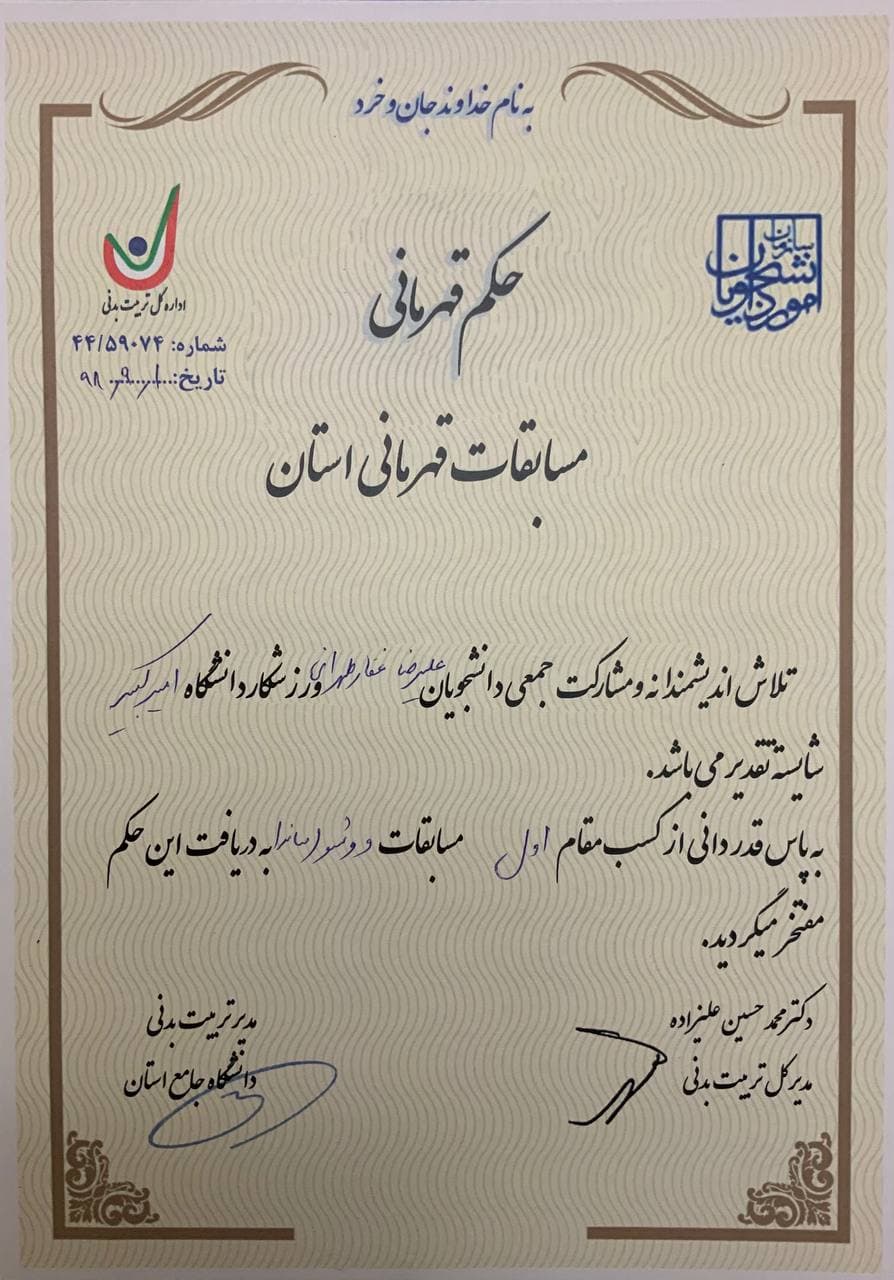 به نام خداوند جان و خرد
سازمان
امور دانشجویان
اداره کل تربیت بدنی
شماره: ۴۴/۵۹۰۷۴
تاریخ:
۹۸
حکم قهرمانی
مسابقات قهرمانی استان
تلاش اندیشمندانه و مشارکت جمعی دانشجویان علیرضا غفار طهرانی ورزشکار دانشگاه امیرکبیر
شایسته تقدیر می باشد.
به پاس قدردانی از کسب مقام اول مسابقات ووشو به دریافت این حکم
مفتخر میگردید.
دکتر محمد حسین علیزاده
مدیر کل تربیت بدنی
مدیر تربیت بدنی
دانشگاه جامع استان